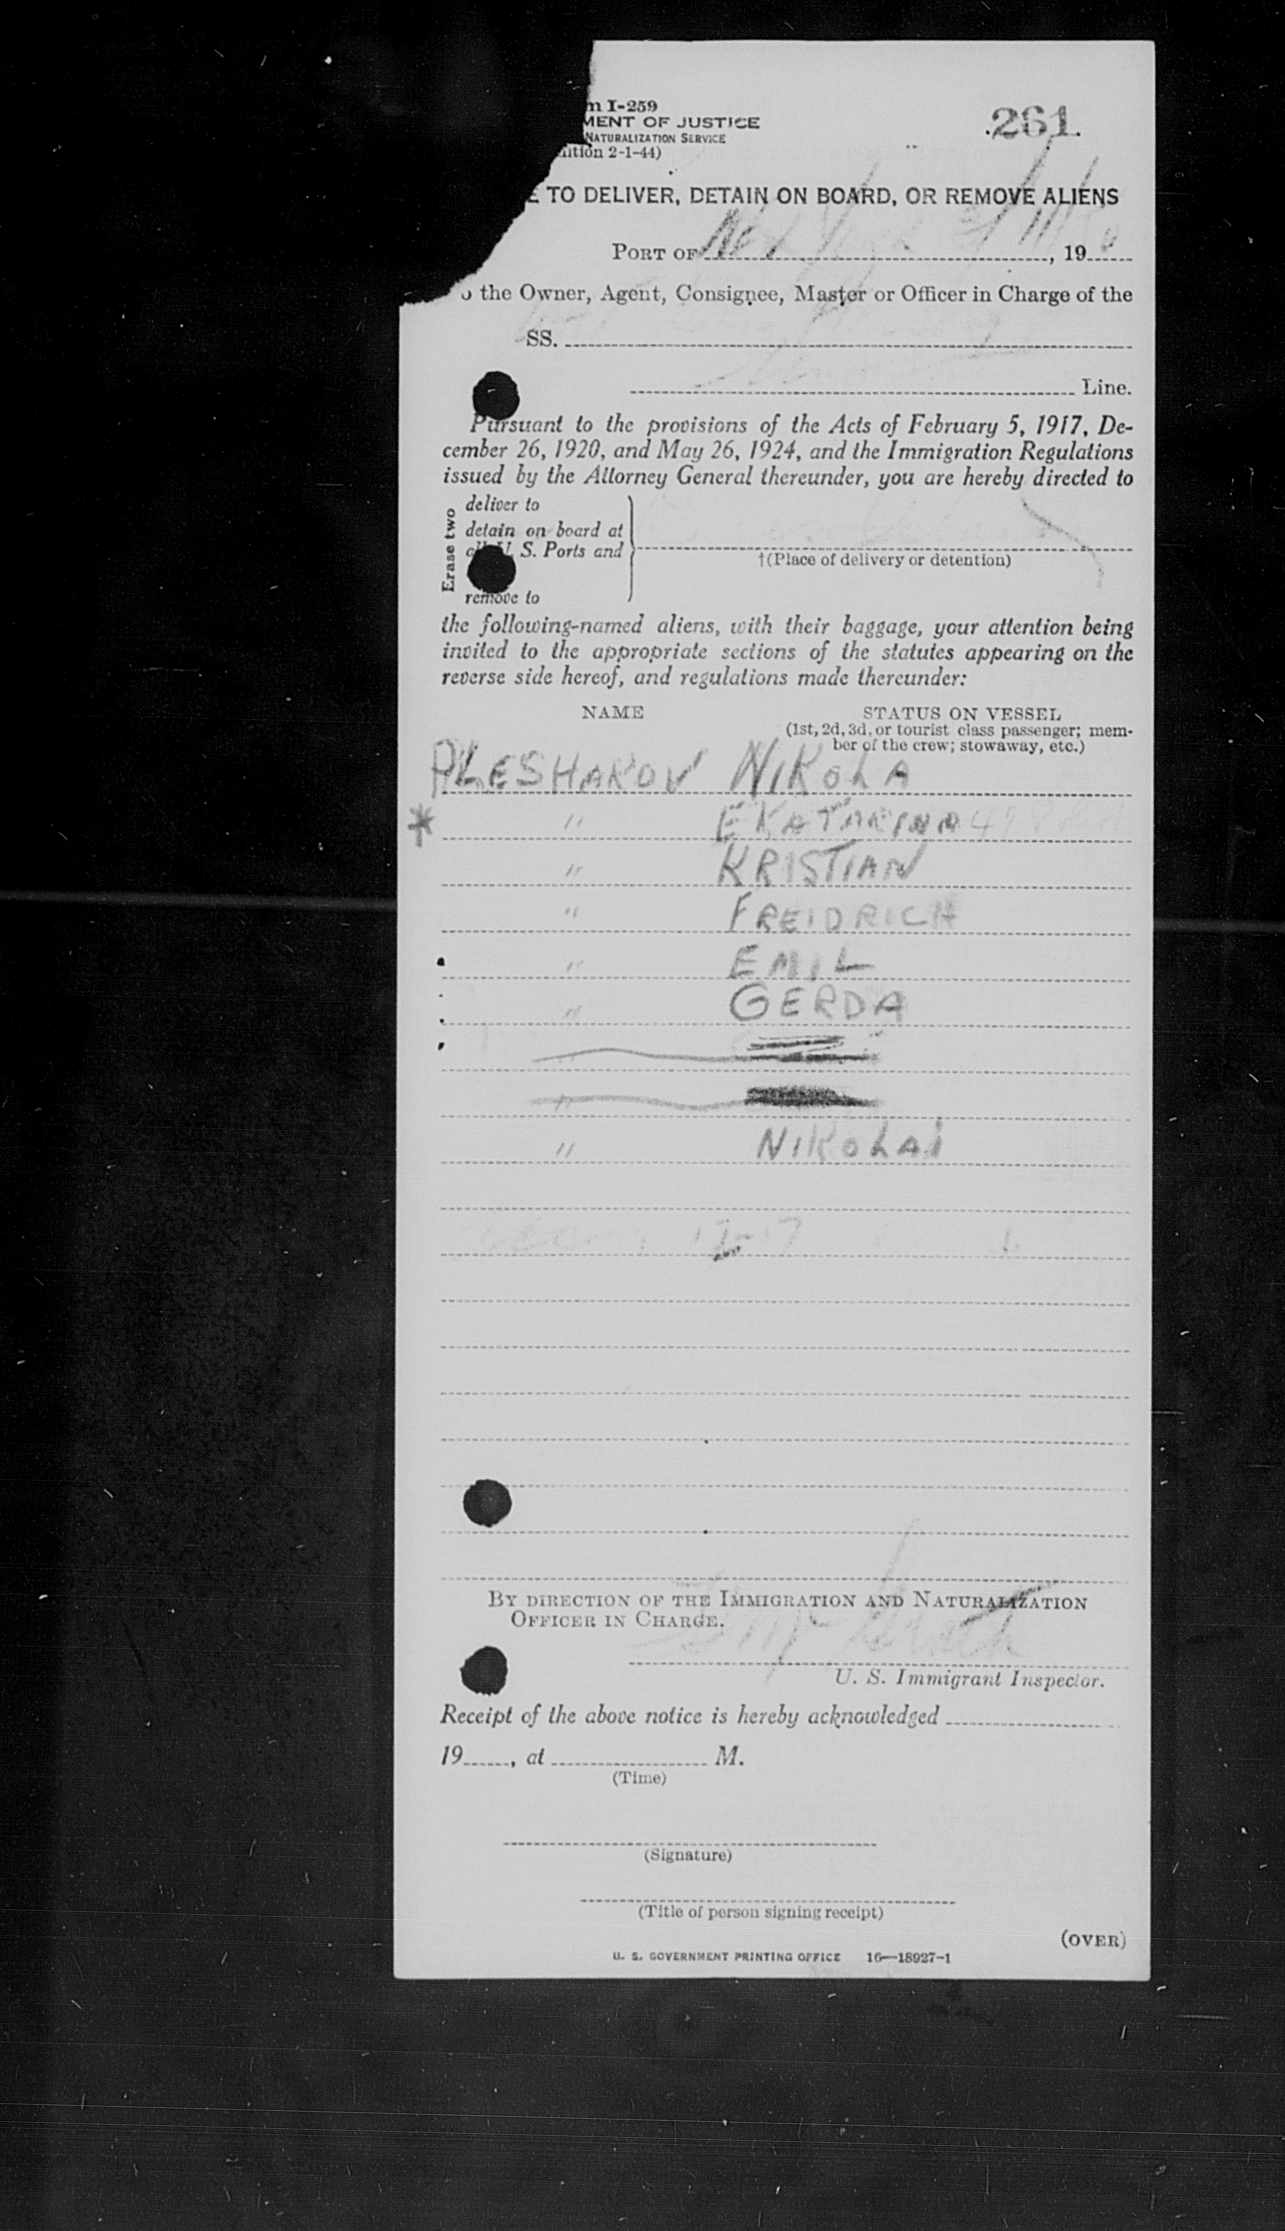 I-259
.261.
MENT OF JUSTICE
NATURALIZATION SERVICE
2-1-44)
TO DELIVER, DETAIN ON BOARD, OR REMOVE ALIENS
PORT OF New York, 19
the Owner, Agent, Consignee, Master or Officer in Charge of the
SS.
Line.
Pursuant to the provisions of the Acts of February 5, 1917, De-
cember 26, 1920, and May 26, 1924, and the Immigration Regulations
issued by the Attorney General thereunder, you are hereby directed to
Erase two
deliver to
detain on board at
all U. S. Ports and
†(Place of delivery or detention)
remove to
the following-named aliens, with their baggage, your attention being
invited to the appropriate sections of the statutes appearing on the
reverse side hereof, and regulations made thereunder:
NAME STATUS ON VESSEL
(1st, 2d, 3d, or tourist class passenger; mem-
ber of the crew; stowaway, etc.)
PLESHAKOV NIKOLA
* " EKATARINA
" KRISTIAN
" FREIDRICH
" EMIL
" GERDA
"
" NIKOLAI
BY DIRECTION OF THE IMMIGRATION AND NATURALIZATION
OFFICER IN CHARGE.
U. S. Immigrant Inspector.
Receipt of the above notice is hereby acknowledged
19, at M.
(Time)
(Signature)
(Title of person signing receipt)
(OVER)
U. S. GOVERNMENT PRINTING OFFICE 16—18927-1